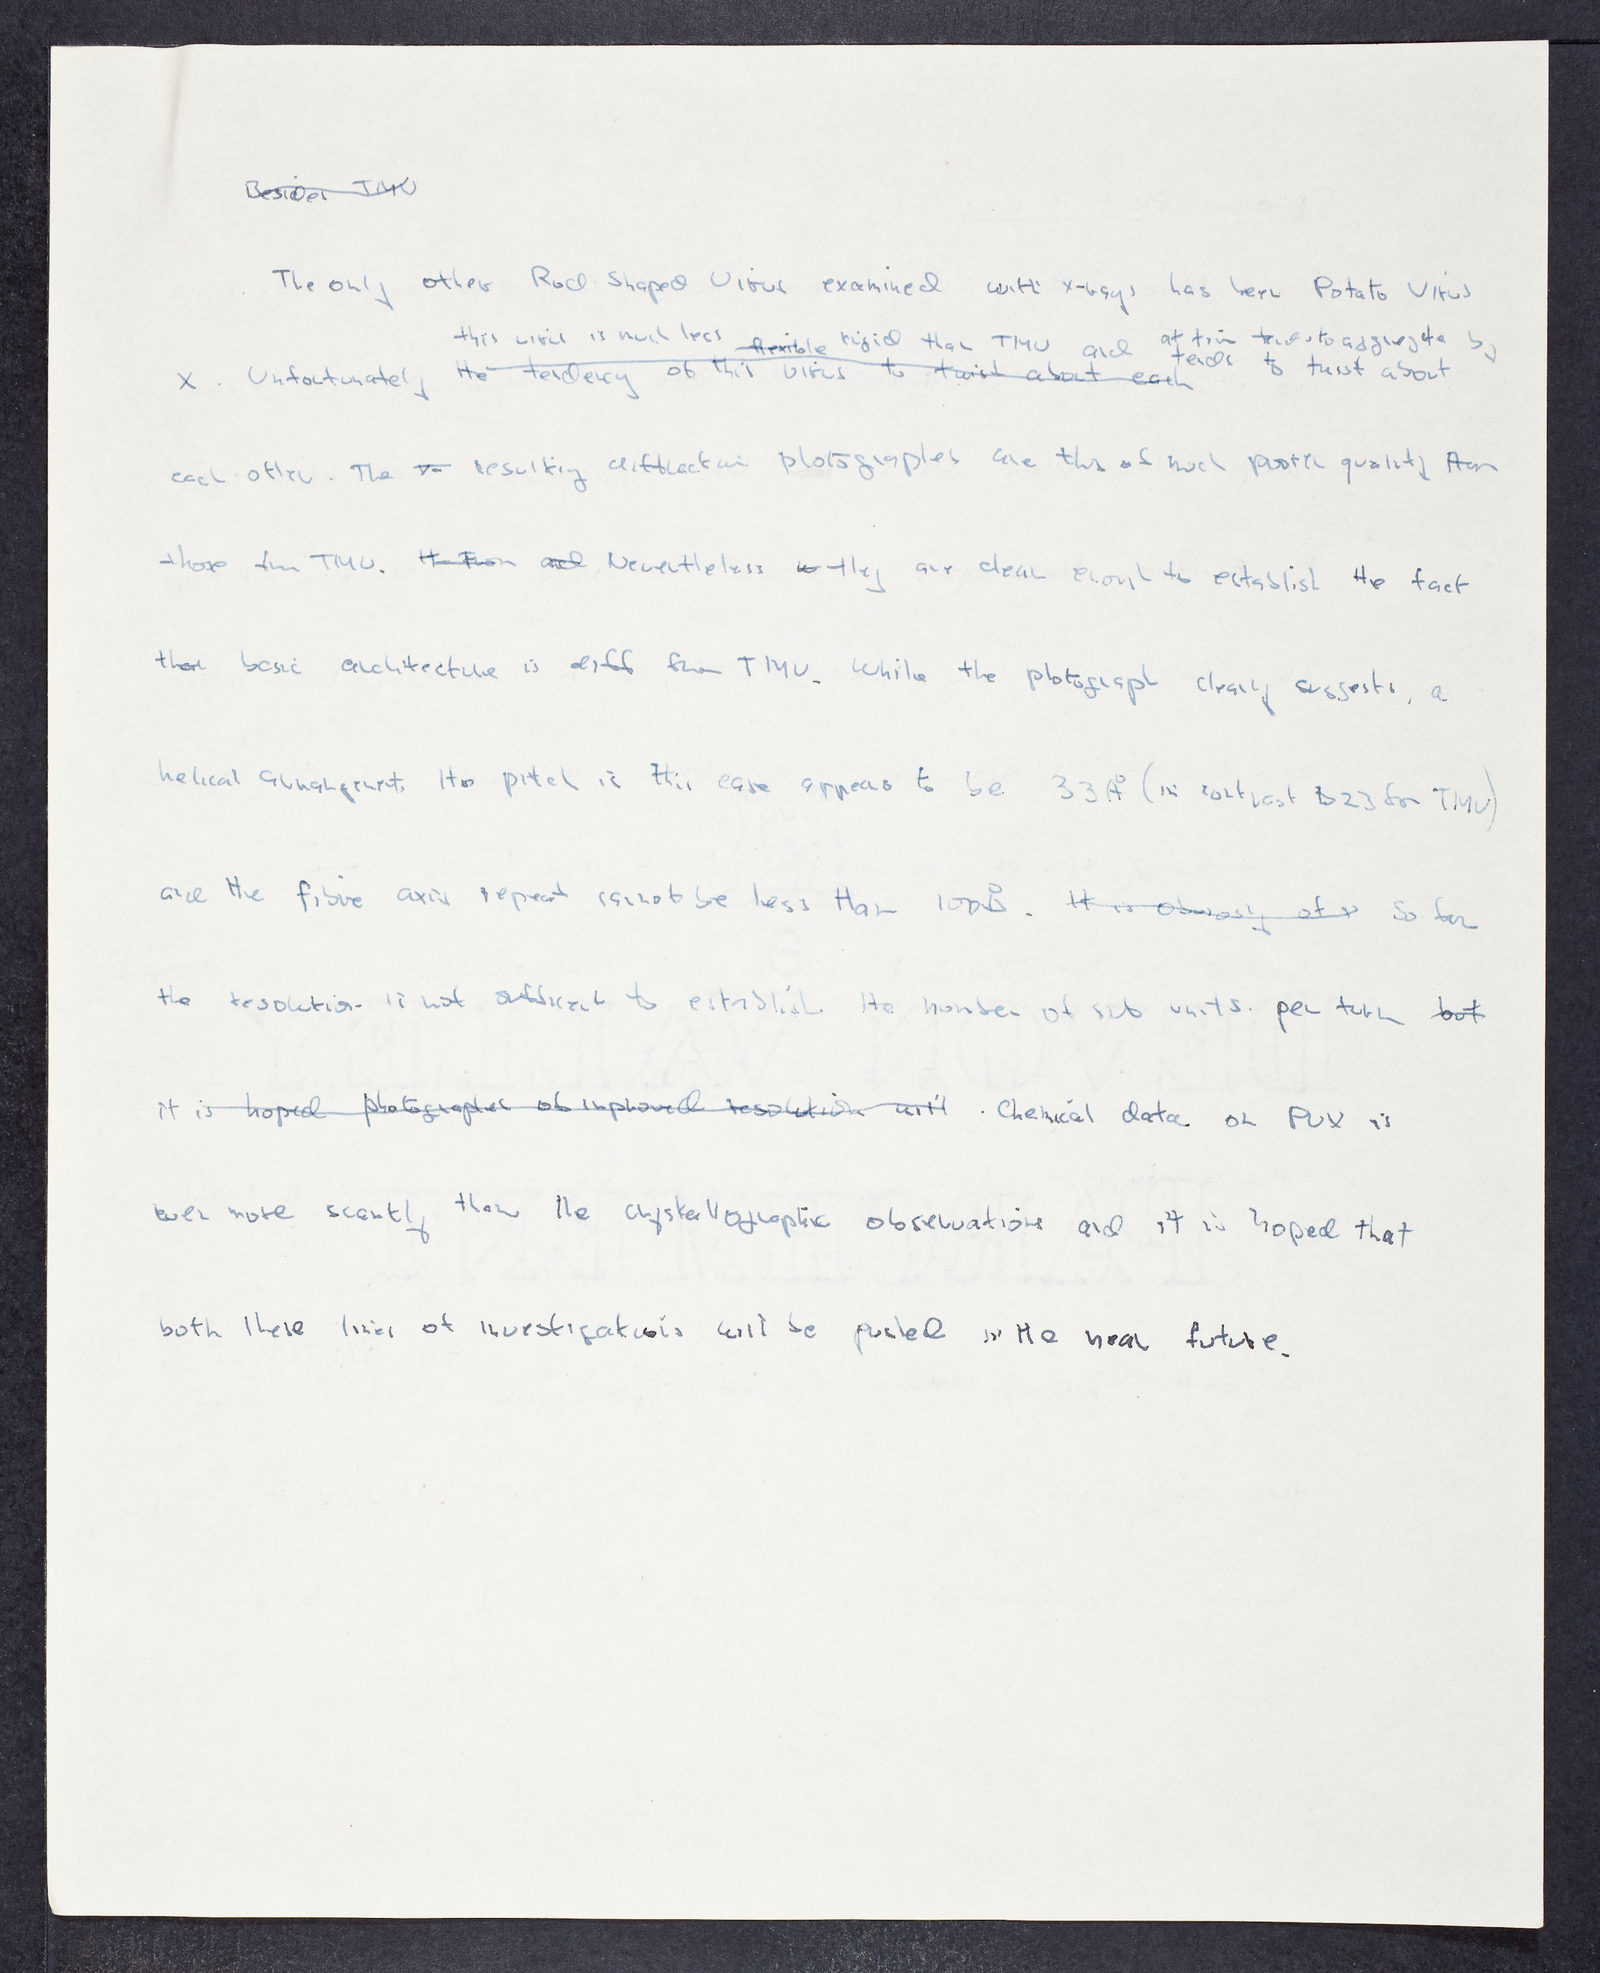 Besides TMV
The only other Rod Shaped Virus examined with x-rays has been Potato Virus
this virus is much less flexible rigid than TMV and tends to aggregate by
X. Unfortunately the tendency of this virus to twist about each tends to twist about
each other. The resulting diffraction photographs are thus of much poorer quality than
those from TMV. and Nevertheless they are clear enough to establish the fact
that basic architecture is diff from TMV. While the photograph clearly suggests, a
helical arrangement, the pitch in this case appears to be 33Å (in contrast to 23 for TMV)
and the fibre axis repeat cannot be less than 100Å. It is obviously of So far
the resolution is not sufficient to establish the number of sub units. per turn but
it is hoped photographs of improved resolution will. Chemical data on PVX is
even more scantly than the crystallographic observations and it is hoped that
both these lines of investigations will be pushed in the near future.